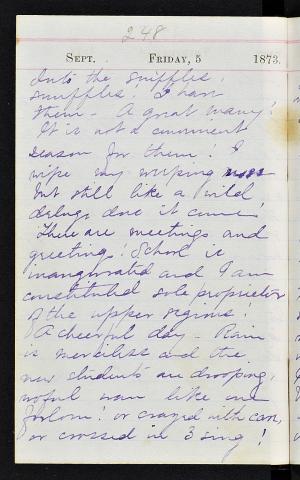 248
SEPT. FRIDAY, 5 1873.
Into the sniffles!
snuffles! I have
them – A great many!
It is not a convenient
season for them! I
wipe my weeping nose
but still like a wild
deluge does it come!
There are meetings and
greeting! School is
inaugurated and I am
constituted sole proprietor
of the upper regions!
A cheerful day – Rain
is merciless and the
new students are drooping,
woful wan like one
forlorn! or crazed with care,
or crossed in